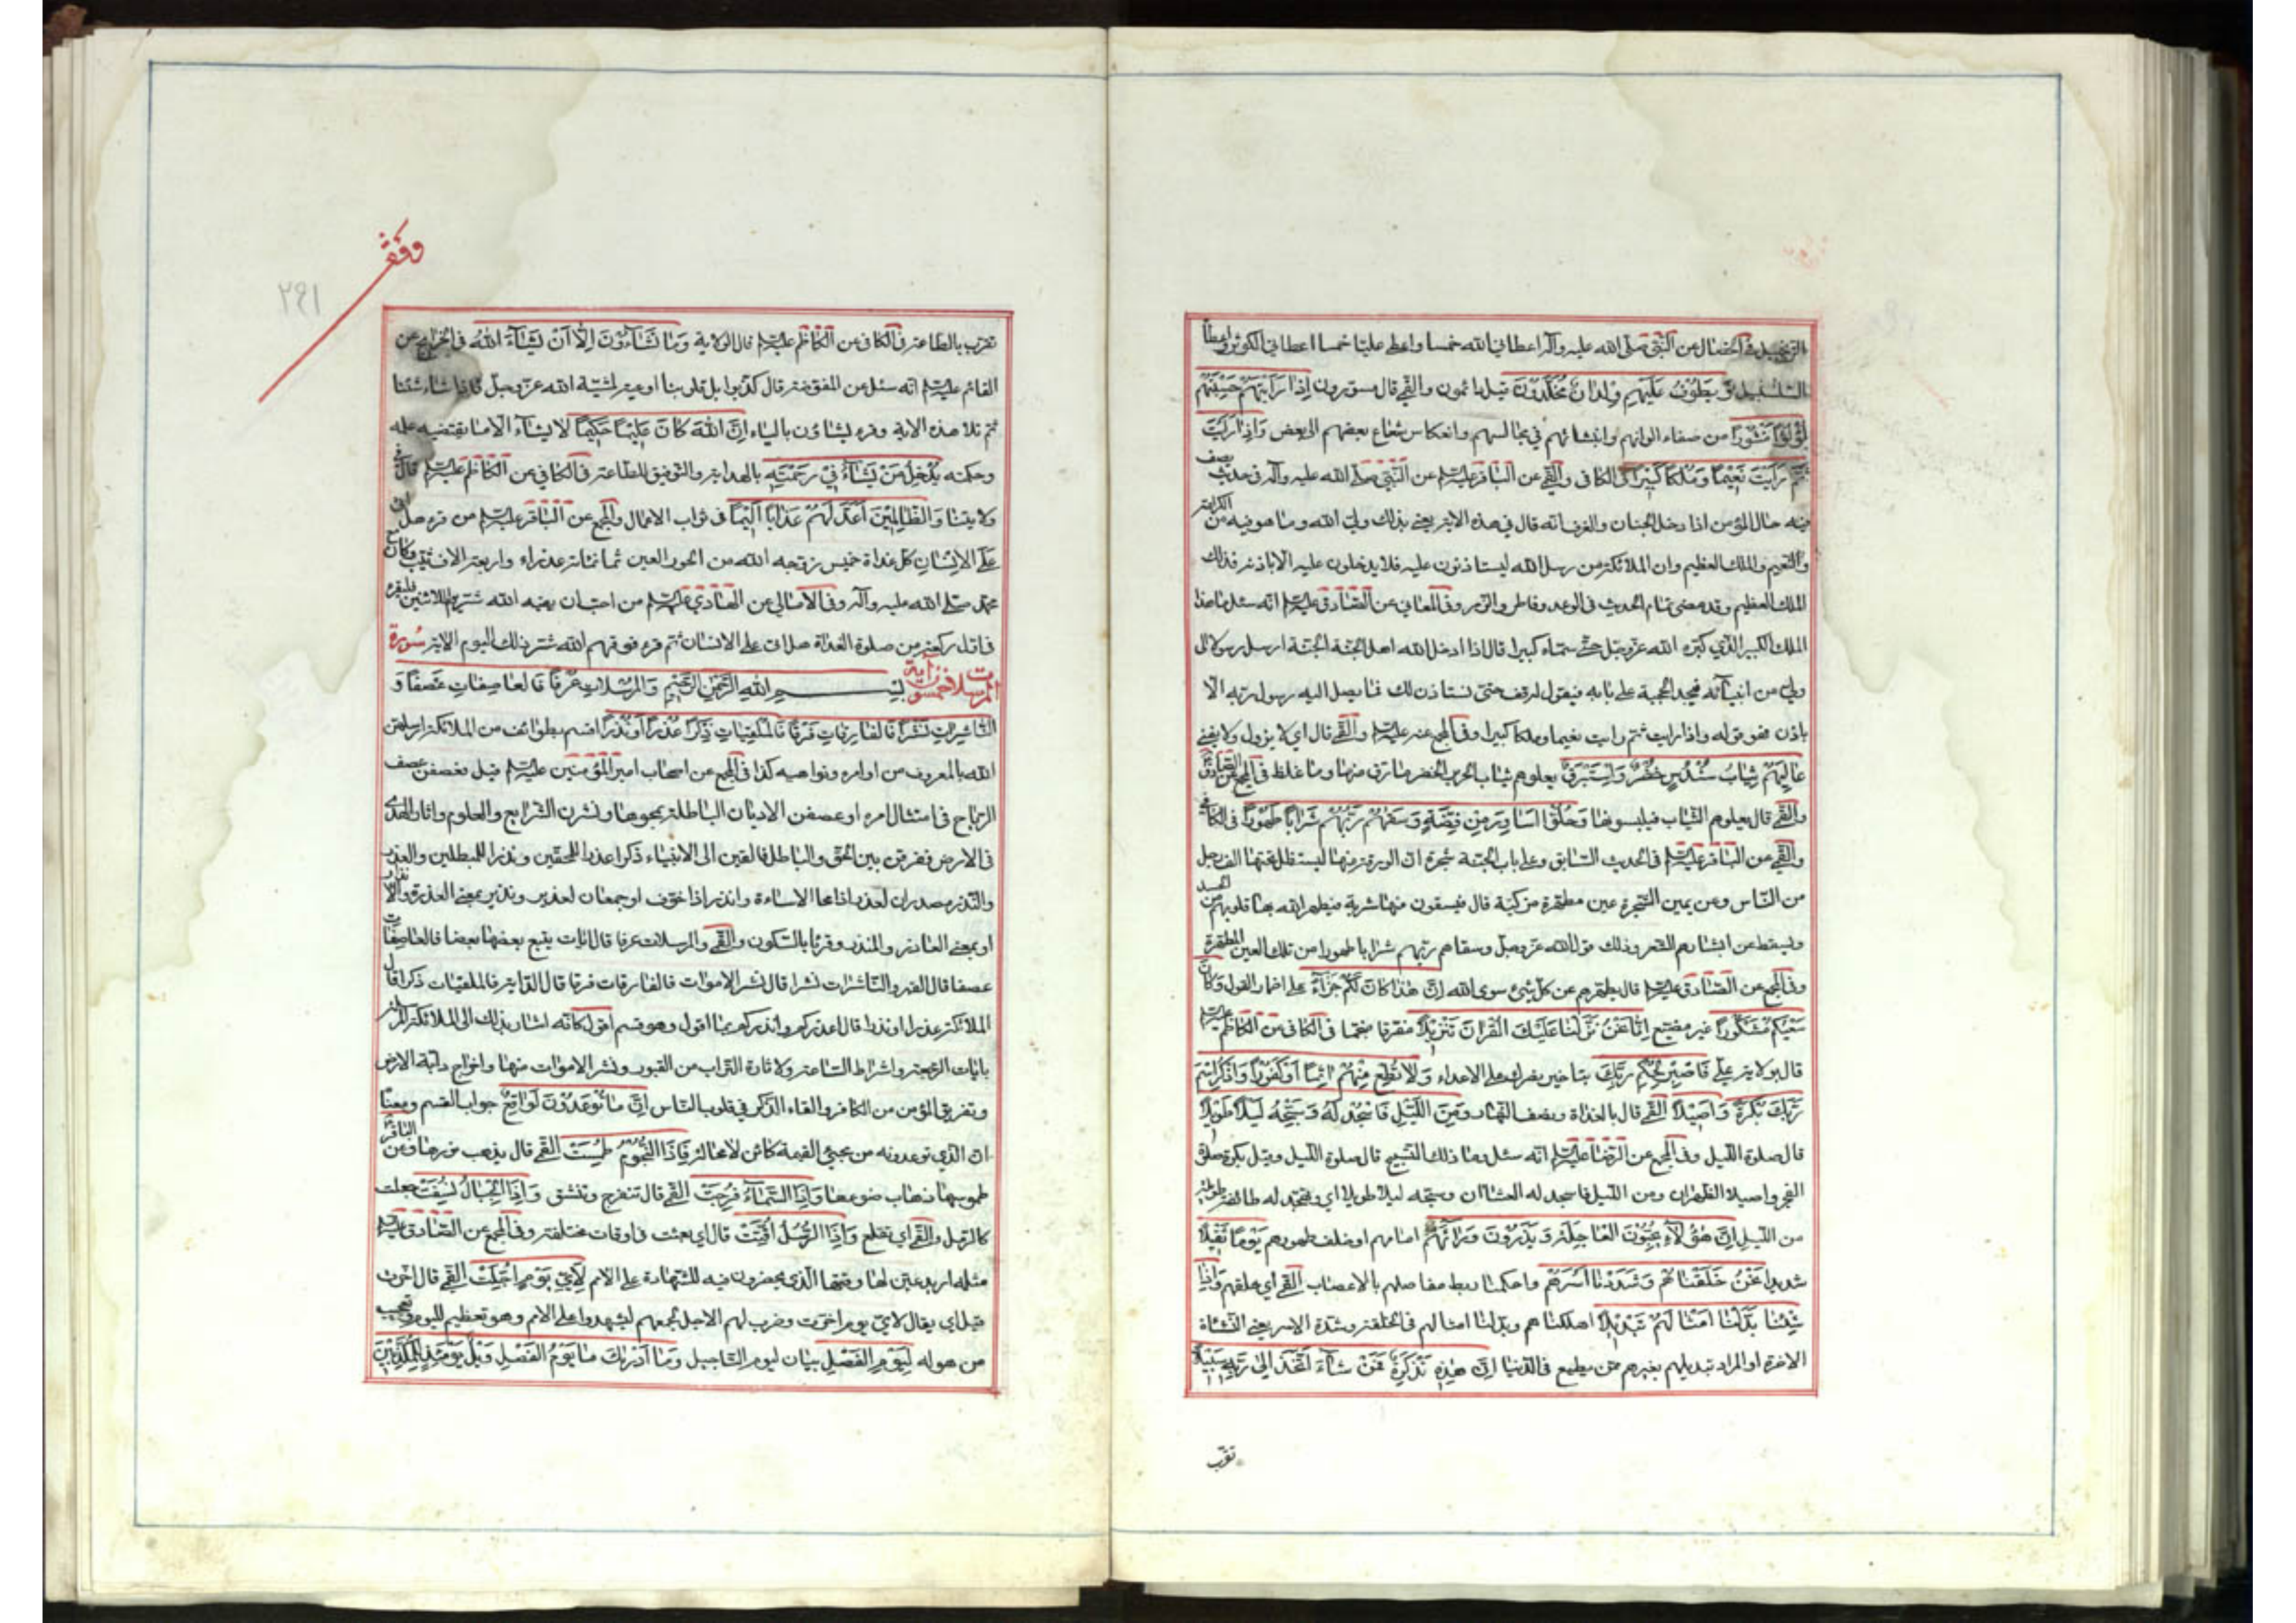 الزنجبيل في الخصال عن النبي صلى الله عليه وآله اعطاني الله خمسا واعطى عليا خمسا اعطاني الكوثر واعطاه
السلسبيل وَيَطُوفُ عَلَيْهِمْ وِلْدَانٌ مُخَلَّدُونَ قيل دائمون والقمي قال مسورون إِذَا رَأَيْتَهُمْ حَسِبْتَهُمْ
لُؤْلُؤًا مَنْثُورًا من صفاء الوانهم وانبثاثهم في مجالسهم وانعكاس شعاع بعضهم الى بعض وَإِذَا رَأَيْتَ
ثَمَّ رَأَيْتَ نَعِيمًا وَمُلْكًا كَبِيرًا في الكافي والقمي عن الباقر عليه السلم عن النبي صلى الله عليه وآله في حديث يصف
فيه حال المؤمن اذا دخل الجنان والغرف انه قال في هذه الاية يعني بذلك ولي الله وما هو فيه من الكرامة
والنعيم والملك العظيم وان الملائكة من رسل الله ليستاذنون عليه فلا يدخلون عليه الا باذنه فذلك
الملك العظيم وقد مضى تمام الحديث في الرعد وفاطر والزمر وفي المعاني عن الصادق عليه السلم انه سئل ما هذا
الملك الكبير الذي كبره الله عز وجل حتى سماه كبيرا قال اذا ادخل الله اهل الجنة الجنة ارسل رسولا الى
ولي من اوليائه فيجد الحجبة على بابه فيقول له قف حتى نستاذن لك فما يصل اليه رسول ربه الا
باذن فهو قوله واذا رايت ثم رايت نعيما وملكا كبيرا وفي المجمع عنه عليه السلم والقمي قال اي لا يزول ولا يفنى
عَالِيَهُمْ ثِيَابُ سُنْدُسٍ خُضْرٌ وَإِسْتَبْرَقٌ يعلوهم ثياب الحرير الخضر ما رق منها وما غلظ في المجمع عن الصادق
والقمي قال يعلوهم الثياب فيلبسونها وَحُلُّوا أَسَاوِرَ مِنْ فِضَّةٍ وَسَقَاهُمْ رَبُّهُمْ شَرَابًا طَهُورًا في الكافي
والقمي عن الباقر عليه السلم في الحديث السابق وعلى باب الجنة شجرة ان الورقة منها ليستظل تحتها الف رجل
من الناس وعن يمين الشجرة عين مطهرة مزكية قال فيسقون منها شربة فيطهر الله بها قلوبهم من الحسد
ويسقط عن ابشارهم الشعر وذلك قول الله عز وجل وسقاهم ربهم شرابا طهورا من تلك العين المطهرة
وفي المجمع عن الصادق عليه السلم قال يطهرهم عن كل شيء سوى الله إِنَّ هَذَا كَانَ لَكُمْ جَزَاءً على اضمار القول وَكَانَ
سَعْيُكُمْ مَشْكُورًا غير مضيع إِنَّا نَحْنُ نَزَّلْنَا عَلَيْكَ الْقُرْآنَ تَنْزِيلًا مفرقا منجما في الكافي عن الكاظم عليه السلم
قال بولاية علي فَاصْبِرْ لِحُكْمِ رَبِّكَ بتاخير نصرك على الاعداء وَلَا تُطِعْ مِنْهُمْ آثِمًا أَوْ كَفُورًا وَاذْكُرِ اسْمَ
رَبِّكَ بُكْرَةً وَأَصِيلًا القمي قال بالغداة ونصف النهار وَمِنَ اللَّيْلِ فَاسْجُدْ لَهُ وَسَبِّحْهُ لَيْلًا طَوِيلًا
قال صلوة الليل وفي المجمع عن الرضا عليه السلم انه سئل ما ذلك التسبيح قال صلوة الليل وقيل بكرة صلوة
الفجر واصيلا الظهران ومن الليل فاسجد له العشاان وسبحه ليلا طويلا اي وتهجد له طائفة طويلة
من الليل إِنَّ هَؤُلَاءِ يُحِبُّونَ الْعَاجِلَةَ وَيَذَرُونَ وَرَاءَهُمْ امامهم او خلف ظهورهم يَوْمًا ثَقِيلًا
شديدا نَحْنُ خَلَقْنَاهُمْ وَشَدَدْنَا أَسْرَهُمْ واحكمنا ربط مفاصلهم بالاعصاب القمي اي خلقهم وَإِذَا
شِئْنَا بَدَّلْنَا أَمْثَالَهُمْ تَبْدِيلًا اهلكناهم وبدلنا امثالهم في الخلقة وشدة الاسر يعني النشاة
الاخرة او المراد تبديلهم بغيرهم ممن يطيع في الدنيا إِنَّ هَذِهِ تَذْكِرَةٌ فَمَنْ شَاءَ اتَّخَذَ إِلَى رَبِّهِ سَبِيلًا
تقرب
وقف
٢٩١
تقرب بالطاعة في الكافي عن الكاظم عليه السلم قال الولاية وَمَا تَشَاءُونَ إِلَّا أَنْ يَشَاءَ اللَّهُ في الخرايج عن
القائم عليه السلم انه سئل عن المفوضة قال كذبوا بل قلوبنا اوعية لمشية الله عز وجل فاذا شاء شئنا
ثم تلا هذه الاية وقرء يشاؤن بالياء إِنَّ اللَّهَ كَانَ عَلِيمًا حَكِيمًا لا يشاء الا ما يقتضيه علمه
وحكمته يُدْخِلُ مَنْ يَشَاءُ فِي رَحْمَتِهِ بالهداية والتوفيق للطاعة في الكافي عن الكاظم عليه السلم قال في
ولايتنا وَالظَّالِمِينَ أَعَدَّ لَهُمْ عَذَابًا أَلِيمًا في ثواب الاعمال والمجمع عن الباقر عليه السلم من قرء هل اتى
على الانسان كل غداة خميس زوجه الله من الحور العين ثمانمائة عذراء واربعة الاف ثيب وكان مع
محمد صلى الله عليه وآله وفي الامالي عن الهادي عليه السلم من احب ان يقيه الله شر يوم الاثنين فليقرء
في اول ركعة من صلوة الغداة هل اتى على الانسان ثم قرء فوقهم الله شر ذلك اليوم الاية سورة
المرسلات خمسون آية بسم الله الرحمن الرحيم وَالْمُرْسَلَاتِ عُرْفًا فَالْعَاصِفَاتِ عَصْفًا وَ
النَّاشِرَاتِ نَشْرًا فَالْفَارِقَاتِ فَرْقًا فَالْمُلْقِيَاتِ ذِكْرًا عُذْرًا أَوْ نُذْرًا اقسم بطوائف من الملائكة ارسلهن
الله بالمعروف من اوامره ونواهيه كذا في المجمع عن اصحاب امير المؤمنين عليه السلم قيل فعصفن عصف
الرياح في امتثال امره او عصفن الاديان الباطلة بمحوها ونشرن الشرايع والعلوم واثار الهدى
في الارض ففرقن بين الحق والباطل فالقين الى الانبياء ذكرا عذرا للمحقين ونذرا للمبطلين والعذر
والنذر مصدران لعذر اذا محا الاساءة وانذر اذا خوف او جمعان لعذير ونذير بمعنى المعذرة والانذار
او بمعنى العاذر والمنذر وقرئا بالسكون والقمي والمرسلات عرفا قال ايات يتبع بعضها بعضا فالعاصفات
عصفا قال القبر والناشرات نشرا قال نشر الاموات فالفارقات فرقا قال الدابة فالملقيات ذكرا قال
الملائكة عذرا او نذرا قال اعذركم وانذركم بما اقول وهو قسم اقول كانه اشار بذلك الى الملائكة المرسلة
بايات الرجعة واشراط الساعة ولاثارة التراب من القبور ونشر الاموات منها واخراج دابة الارض
وتفريق المؤمن من الكافر والقاء الذكر في قلوب الناس إِنَّمَا تُوعَدُونَ لَوَاقِعٌ جواب القسم ومعناه
ان الذي توعدونه من مجيء القيمة كائن لا محالة فَإِذَا النُّجُومُ طُمِسَتْ القمي قال يذهب نورها وعن الباقر
طموسها ذهاب ضوءها وَإِذَا السَّمَاءُ فُرِجَتْ القمي قال تنفرج وتنشق وَإِذَا الْجِبَالُ نُسِفَتْ جعلت
كالرمل والقمي اي تقلع وَإِذَا الرُّسُلُ أُقِّتَتْ قال اي بعثت في اوقات مختلفة وفي المجمع عن الصادق عليه السلم
مثله اريد عين لها وقتها الذي يحضرون فيه للشهادة على الامم لِأَيِّ يَوْمٍ أُجِّلَتْ القمي قال اخرت
قيل اي يقال لاي يوم اخرت وضرب لهم الاجل لجمعهم ليشهدوا على الامم وهو تعظيم لليوم وتعجيب
من هوله لِيَوْمِ الْفَصْلِ بيان ليوم التاجيل وَمَا أَدْرَاكَ مَا يَوْمُ الْفَصْلِ وَيْلٌ يَوْمَئِذٍ لِلْمُكَذِّبِينَ